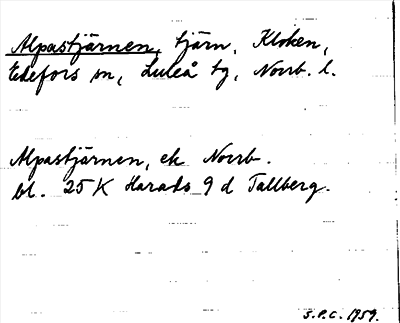 Alpastjärnen, tjärn, Kloken,
Edefors sn, Luleå tg, Norrb. l.
Alpastjärnen, ek Norrb.
bl. 25 K Harads 9 d Tallberg.
S.P.C. 1959.